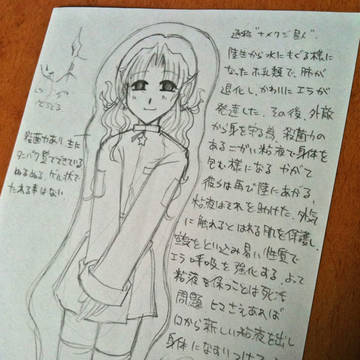 通称“ナメクジ星人”。
陸生から水にもぐる様に
なったホ乳類で、肺が
退化し、かわりにエラが
発達した。その後、外敵
から身を守る為、殺菌力の
ある こがい粘液で身体を
包む様になる やがて
彼らは再び陸にあがる、
粘液はそれを助けた。外気
に触れるとはれる肌を保護し、
酸素をとりこみ易い性質で
エラ呼吸を強化する。よって
粘液を保つことは死活
問題 ヒマさえあれば
口から新しい粘液を出し
身体になすりつけ
殺菌力あり、主に
タンパク質でできている
ぬるぬる、ゲル状で
たれる事はない